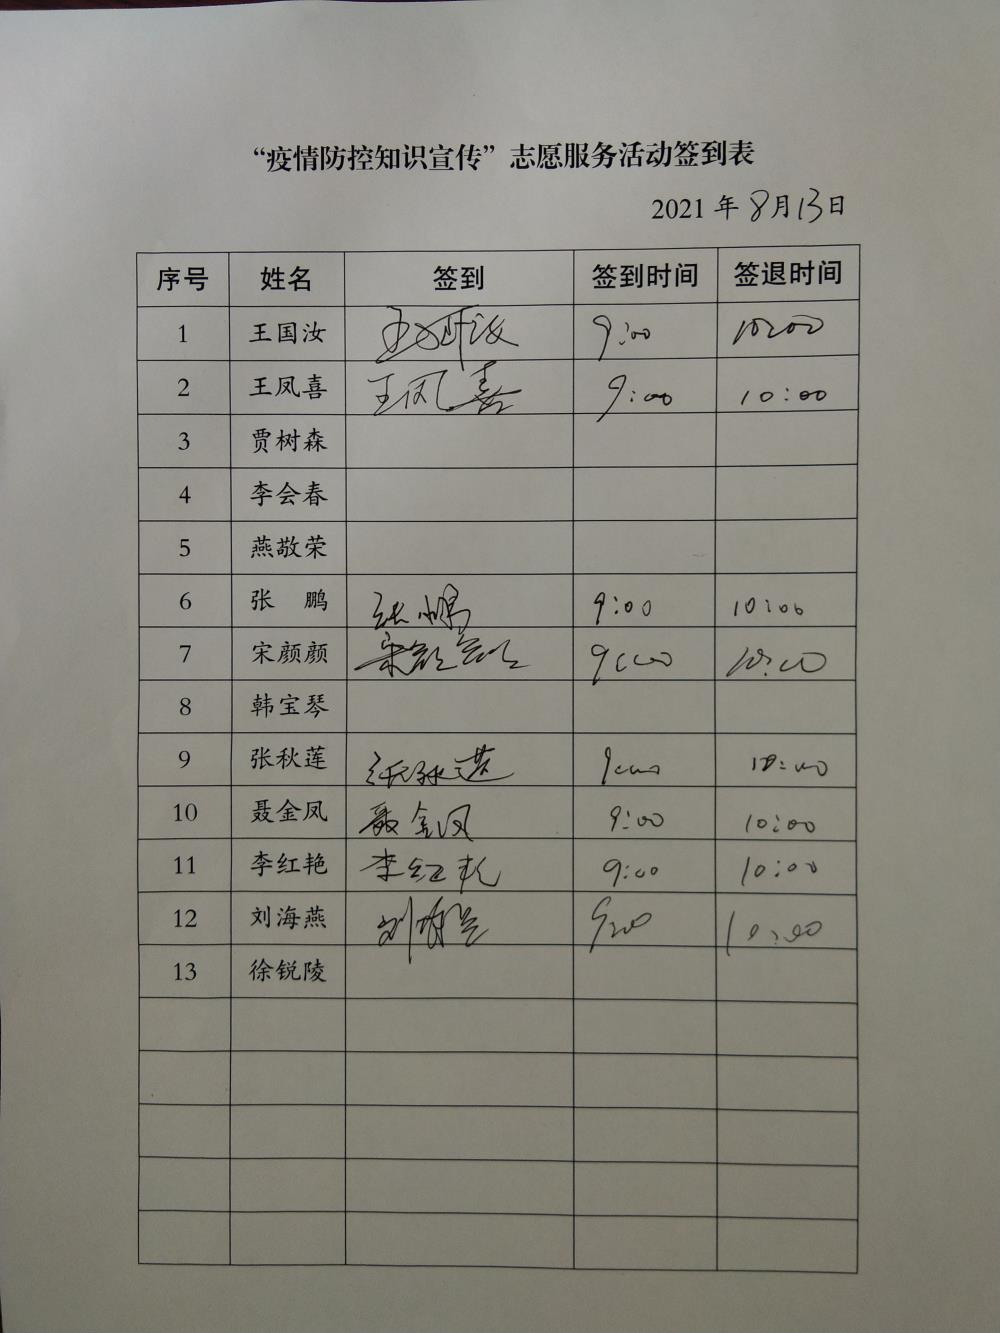 “疫情防控知识宣传”志愿服务活动签到表
2021 年 8月13日
序号 姓名 签到 签到时间 签退时间
1 王国汝 王国汝 9:00 10:00
2 王凤喜 王凤喜 9:00 10:00
3 贾树森
4 李会春
5 燕敬荣
6 张 鹏 张鹏 9:00 10:00
7 宋颜颜 宋颜颜 9:00 10:00
8 韩宝琴
9 张秋莲 张秋莲 9:00 10:00
10 聂金凤 聂金凤 9:00 10:00
11 李红艳 李红艳 9:00 10:00
12 刘海燕 刘海燕 9:00 10:00
13 徐锐陵